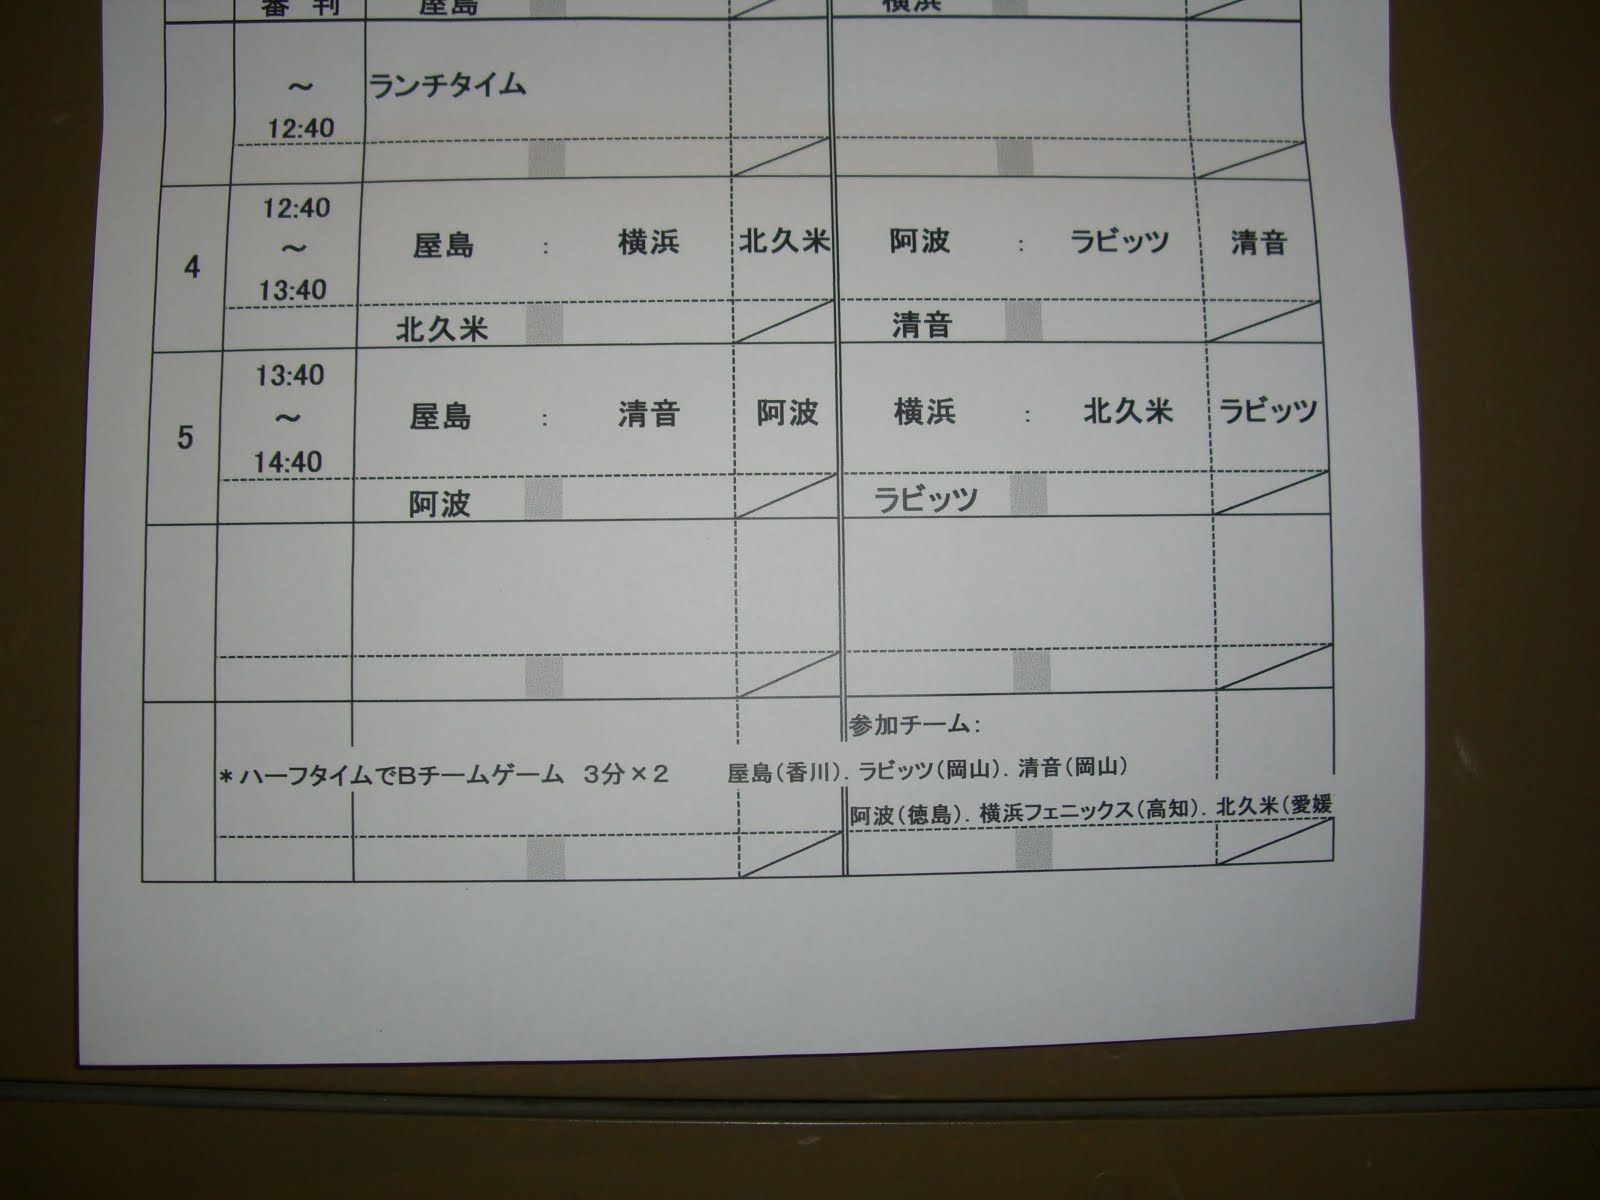 審 判 屋島 横浜
～ ランチタイム
12:40
12:40
4 ～ 屋島 : 横浜 北久米 阿波 : ラビッツ 清音
13:40
北久米 清音
13:40
5 ～ 屋島 : 清音 阿波 横浜 : 北久米 ラビッツ
14:40
阿波 ラビッツ
参加チーム:
*ハーフタイムでBチームゲーム 3分×2 屋島(香川). ラビッツ(岡山). 清音(岡山)
阿波(徳島). 横浜フェニックス(高知). 北久米(愛媛